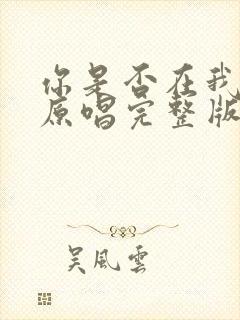 你是否在我
原唱完整版
吴風雲